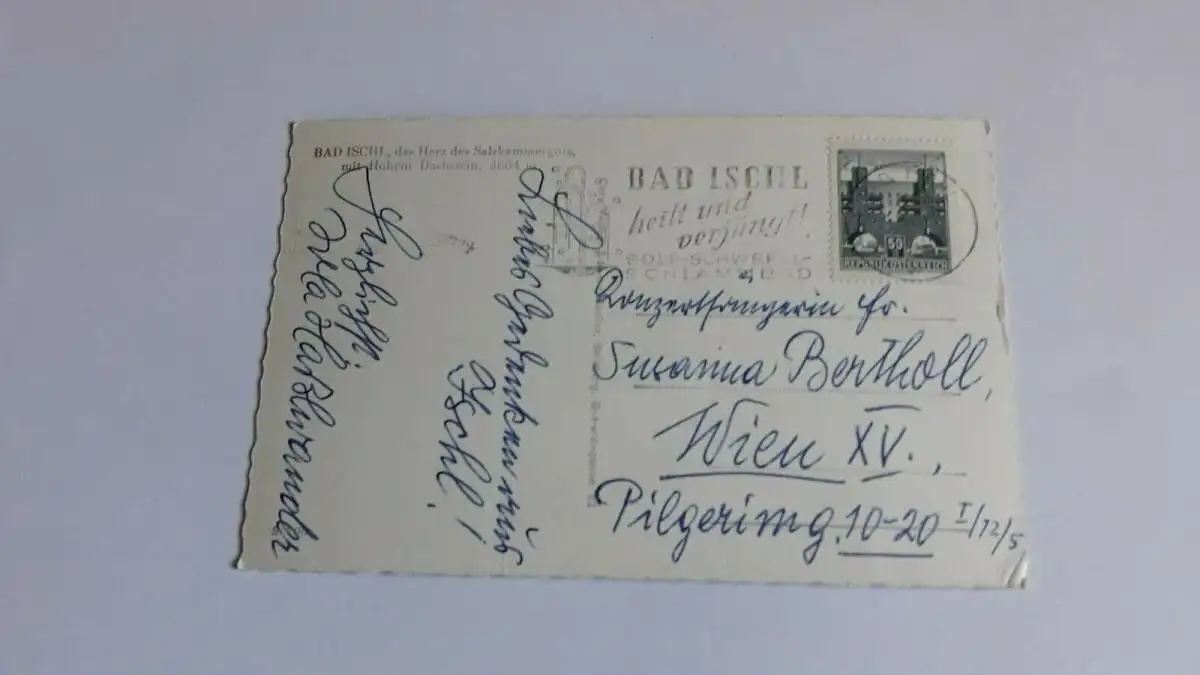 BAD ISCHL, das Herz des Salzkammerguts,
mit Hohem Dachstein, 3004 m
BAD ISCHL
heilt und
verjüngt!
SOLE-SCHWEFEL-
SCHLAMMBAD
50
REPUBLIK ÖSTERREICH
Konzertsängerin Fr.
Susanna Bertholl,
Wien XV.,
Pilgerimg. 10-20 I/12/5
Liebe Gedanken aus
Ischl!
Herzlichst